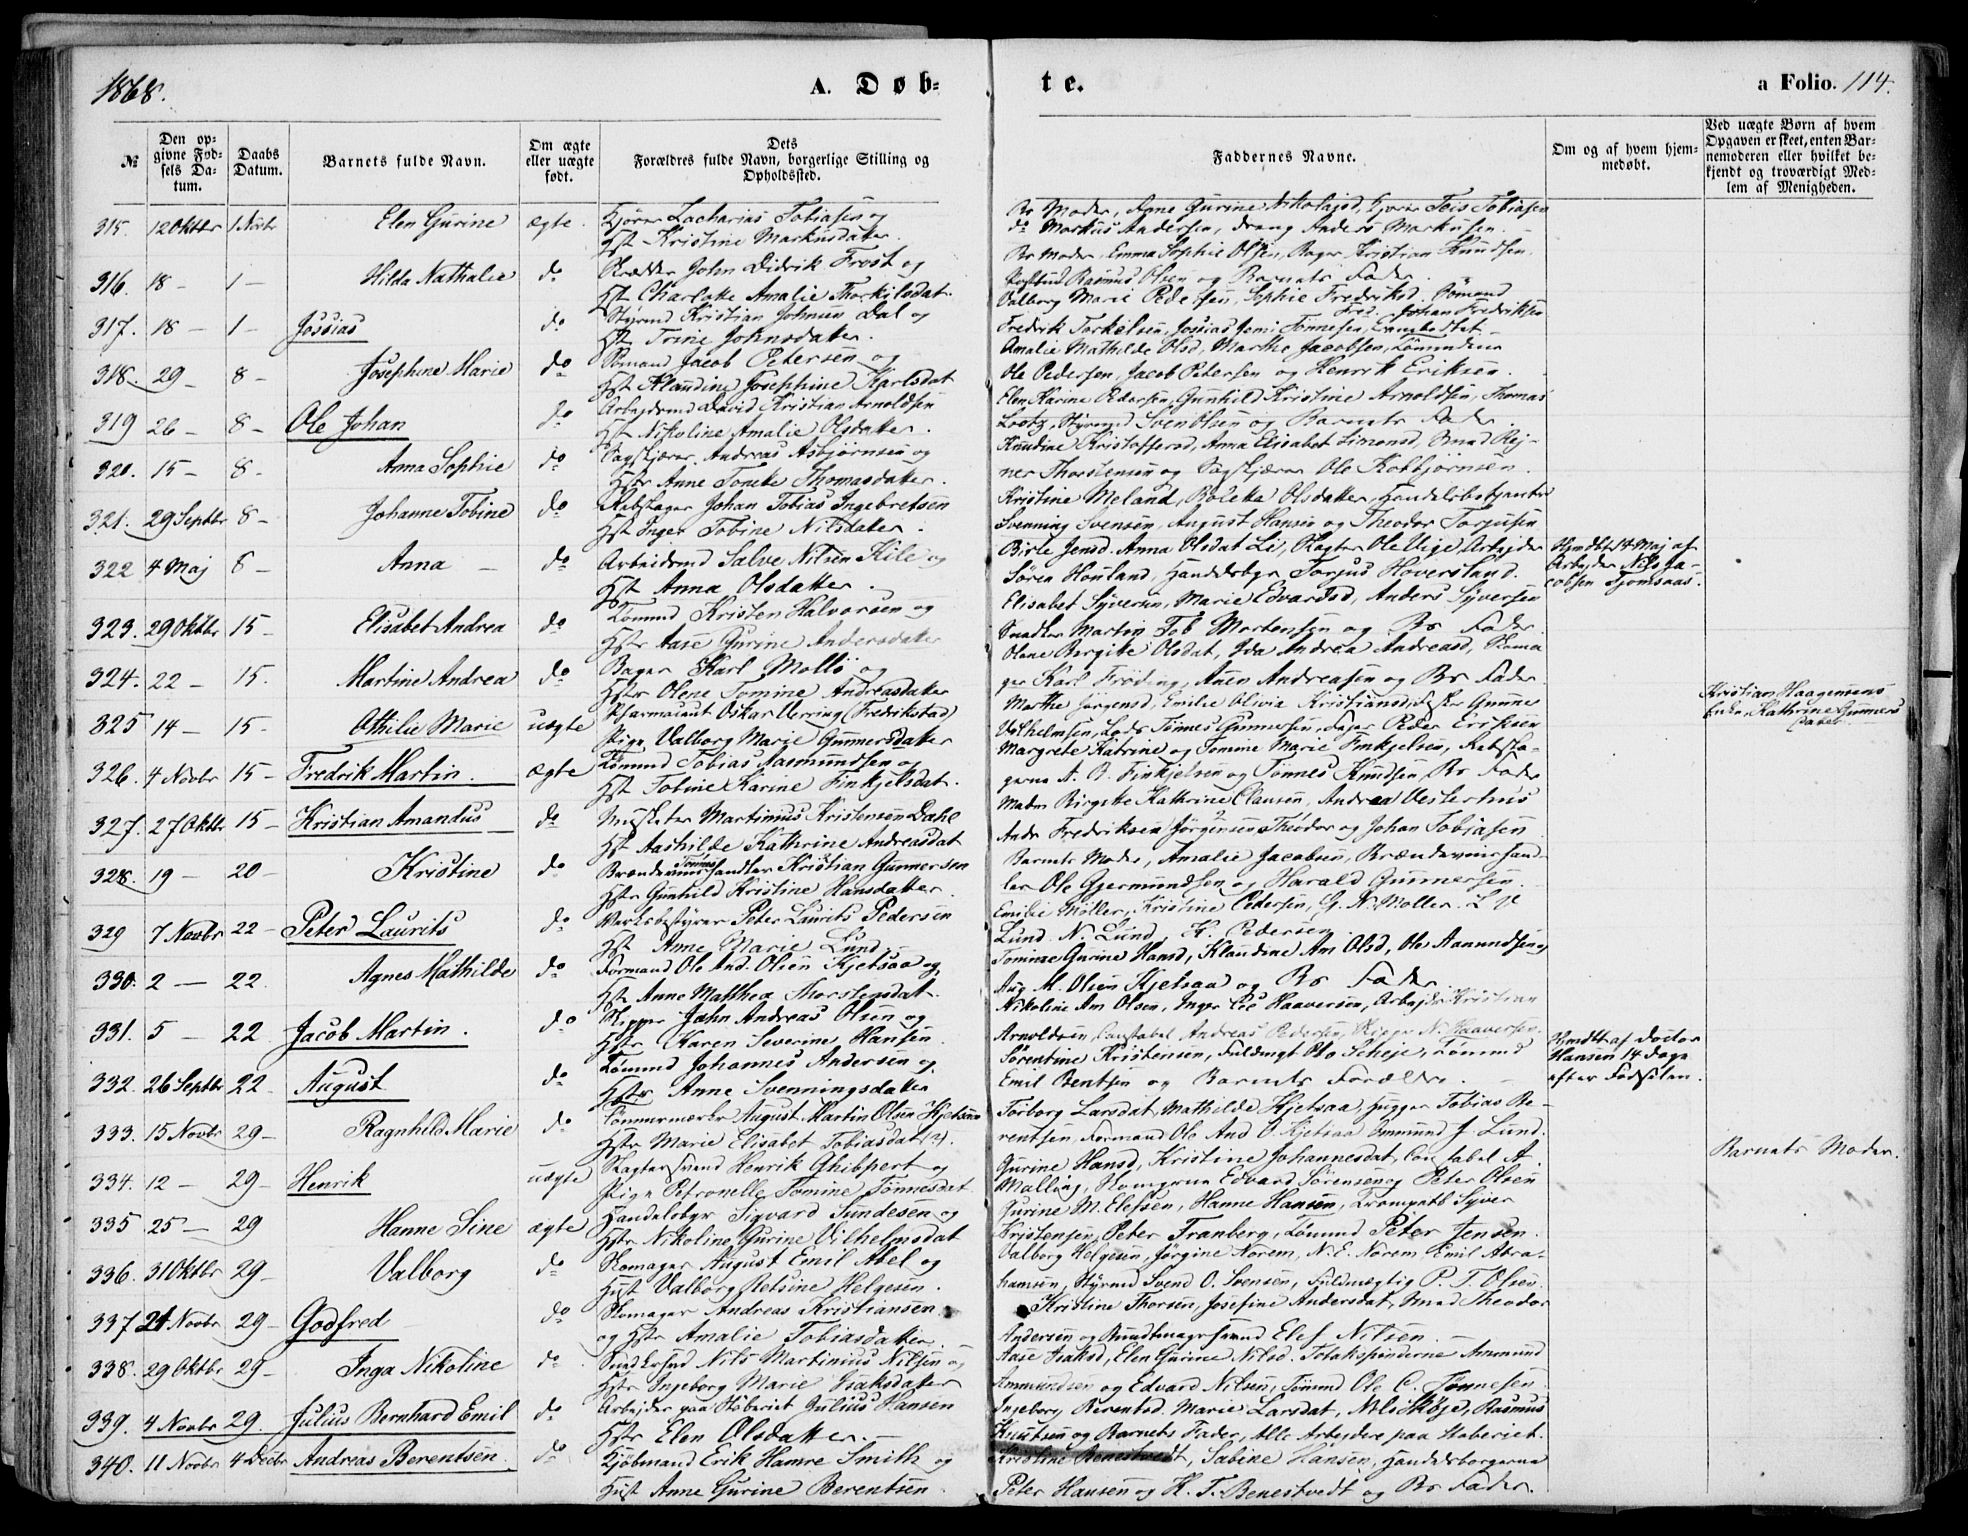 1868.
A. Døb-
te.
a Folio. 114.
№
Den op-
givne Fød-
sels Da-
tum.
Daabs
Datum.
Barnets fulde Navn.
Om ægte
eller uægte
født.
Dets
Forældres fulde Navn, borgerlige Stilling og
Opholdssted.
Faddernes Navne.
Om og af hvem hjem-
medøbt.
Ved uægte Børn af hvem
Opgaven er skeet, enten Bar-
nemoderen eller hvilket be-
kjendt og troværdigt Med-
lem af Menigheden.
315. 12 Oktbr 1 Novbr Elen Gurine ægte. Kjører Zacharias Tobiasen og
Hst Kristine Markusdatter.
Bs Moder, Anne Gurine Nikolajsd, Kjører Tobiasen
do Markus Andersen, dreng Anders Markusen.
316. 18 - 1 - Hilda Nathalie do Skrædder John Didrik Frost og
Hst Charlotte Amalie Thorkildsdat.
Bs Moder, Emma Sophie Olsen, Bager Kristian Knudsen,
Postbud Rasmus Olsen og Barnets Fader.
317. 18 - 1 - Jossias do Styrmd Kristian Johnsen Dal og
Hst Trine Johnsdatter.
Valborg Marie Pedersen, Sophie Fredriksd. Sømænd
Johan Fredriksen
Fredrik Torkelsen, Jossias Jemi Tønnesen,
318. 29 - 8 - Josephine Marie do Sømand Jacob Petersen og
Hst Klaudine Josephine Karlsdat
Amalie Mathilde Olsd, Marthe Jacobsen, Tømmdene
Ole Pedersen, Jacob Petersen og Henrik Eriksen.
319 26 - 8 - Ole Johan do Arbejdsmd David Kristian Arnoldsen
Hst Nikoline Amalie Olsdatter.
Elen Karine Pedersen, Gunhild Kristine Arnoldsen, Thomas
Lootz, Styrmd Sven Olsen og Barnets Fader
320. 15 - 8 - Anna Sophie do Sagskjærer Andreas Asbjørnsen og
Hstr Anne Tomke Thomasdatter.
Knudine Kristoffersd, Anna Elisabet Simonsd, Smed Rej-
ner Thorstensen og Sagskjærer Ole Kolbjørnsen.
321. 29 Septbr 8 - Johanne Tobine do Rebslager Johan Tobias Ingebretsen
Hst Inger Tobine Nilsdatter.
Kristine Meland, Bolette Olsdatter, Handelsbetjenter
Svenning Svensen, August Hansen og Theodor Torjusen
322 4 Maj 8 - Anna - do Arbeidsmd Salve Nilsen Kile og
Hst Anna Olsdatter.
Birte Jensd. Anna Olsdat Li, Slagter Ole Vige Arbejder
Søren Houland, Handelsbgr Torjus Høversland.
Hjmdbt 14 Maj af
Arbejder Nils Ja-
cobsen Tjomsaas.
323. 29 Oktbr 15 - Elisabet Andrea do Tømmd Kristen Halvorsen og
Hstr Aase Gurine Andersdatter
Elisabet Syversen, Marie Edvardsd, Anders Syversen
Snedker Martin Tob Mortensen og Bs Fader.
324. 22 - 15. Martine Andrea do Bager Karl Mollø og
Hstr Olene Tomine Andreasdatter
Olene Birgitte Olsdat, Ida Andrea Andreasd, Skoma
ger Karl Frøding, Anen Andreasen og Bs Fader
325 14 - 15 - Othilie Marie uægte Pharmaceut Oskar Verring (Fredrikstad)
Pige Valborg Marie Gunnersdatter
Marthe Jørgensd, Emilie Olivia Kristiansd, Fisker Gunne
Vilhelmsen, Lods Tønnes Gunnersen, Peder Eriksen
Kristian Haagensens
Enke, Kathrine Gunners
datter
326. 4 Novbr 15 - Fredrik Martin. ægte Tømmd Tobias Aasmundsen og
Hst Tobine Karine Finkjelsdat.
Margrete Katrine og Tomine Marie Finkjelsen, Rebsla-
gerne A. B. Finkjelsen og Tønnes Knudsen, Bs Fader
327. 27 Oktbr 15 - Kristian Amandus do Musketer Martinius Kristensen Dahl
Hst Aashilde Kathrine Andreasdat
Madm Birgitte Kathrine Clausen, Andrea Vesterhus
Andr Fredriksen, Jørgensen, Theodor og Johan Tobiasen
328. 19 - 20 - Kristine do Brændeviinshandler Tønnes Kristian Gunnersen
Hstr Gunhild Kristine Hansdatter.
Barnets Moder, Amalie Jacobsen, Brændeviinshand-
ler Ole Gjermundsen og Harald Gunnersen.
329 7 Novbr 22 - Peter Laurits do Værksbestyrer Peter Laurits Pedersen
Hst Anne Marie Lund.
Emilie Møller, Kristine Pedersen, G. N. Møller. L P
Lund. N. Lund, K. Pedersen.
330. 2 - 22. Agnes Mathilde do Formand Ole And. Olsen Kjetsaa og
Hst Anne Matthea Thorstensdat.
Tomine Gurine Hansd, Klaudine Am Olsd, Ole Aanundsen og
Aug M. Olsen Kjetsaa og Bs Fader.
331. 5 - 22 Jacob Martin. do Skipper John Andreas Olsen og
Hstr Karen Severine Hansen.
Nikoline Am Olsen, Inger Haaversen, Arbejder Kristian
Arnoldsen, Constabel Andreas Pedersen, Skipper N. Haaversen.
332. 26 Septbr 22 - August do Tømmd Johannes Andersen og
Hstr Anne Svenningsdatter
Sørentine Kristensen, Fuldmgt Ole Scheje, Tømmd
Emil Bentsen og Barnets Forældre. -
Hjmdbt af Doctor
Hansen 14 Dage
efter Fødselen.
333. 15 Novbr 29 - Ragnhild Marie do Tømmermærker August Martin Olsen Kjetsaa
Hstr Marie Elisabet Tobiasdat (?).
Torborg Larsdat, Mathilde Kjetsaa, Hugger Tobias Be-
rentsen, Formand Ole And O. Kjetsaa Ommund J. Lund.
334. 12 - 29 - Henrik uægte Slagtersvend Henrik Ghibpert og
Pige Petronelle Tomine Tønnesdat
Gurine Hansd, Kristine Johannesdat, Constabel A.
Malling, Skomgerne Edvard Sørensen og Peter Olsen
Barnets Moder.
335 25 - 29 Hanne Sine ægte Handelsbgr Sigvard Sundesen og
Hstr Nikoline Gurine Vilhelmsdat
Gurine M. Elefsen, Hanne Hansen, Trompetb Syver
Kristensen, Peter Tranberg, Tømmd Peter Jensen.
336. 31 Oktbr 29 - Valborg do Skomager August Emil Abel og
Hust Valborg Retsine Helgesen.
Valborg Helgesen, Jørgine Norem, N. E. Norem Emil Abra-
hamsen, Styrmd Svend O. Svensen, Fuldmægtig P. T. Olsen.
337 21 Novbr 29 - Godfred do Skomager Andreas Kristiansen
og Hstr Amalie Tobiasdatter.
Kristine Thorsen, Josefine Andersdat, Smed Theodor
Andersen og Bundtmagersvend Elef Nilsen.
338. 29 Oktbr 29 - Inga Nikoline do Snedkersvd Nils Martinius Nilsen og
Hstr Ingeborg Marie Isaksdatter
Aase Isaksd, Elen Gurine Nilsd. Tobakspinderne Ammund
Ammundsen og Edvard Nilsen, Tømmd Ole C. Tønnesen.
339. 4 Novbr 29. Julius Bernhard Emil do Arbejder paa Støberiet Julius Hansen
Hstr Elen Olsdatter. -
Ingeborg Berentsd. Marie Larsdat, Nils Skøje, Rasmus
Knutsen og Barnets Fader, Alle Arbejdere paa Støberiet.
340. 11 Novbr 4 Decbr Andreas Berentsen. do Kjøbmand Erik Hamre Smith og
Hust Anne Gurine Berentsen.
Kristine Benestvedt, Sabine Hansen, Handelsborgerne
Peter Hansen og K. T. Benestvedt og Bs Fader.